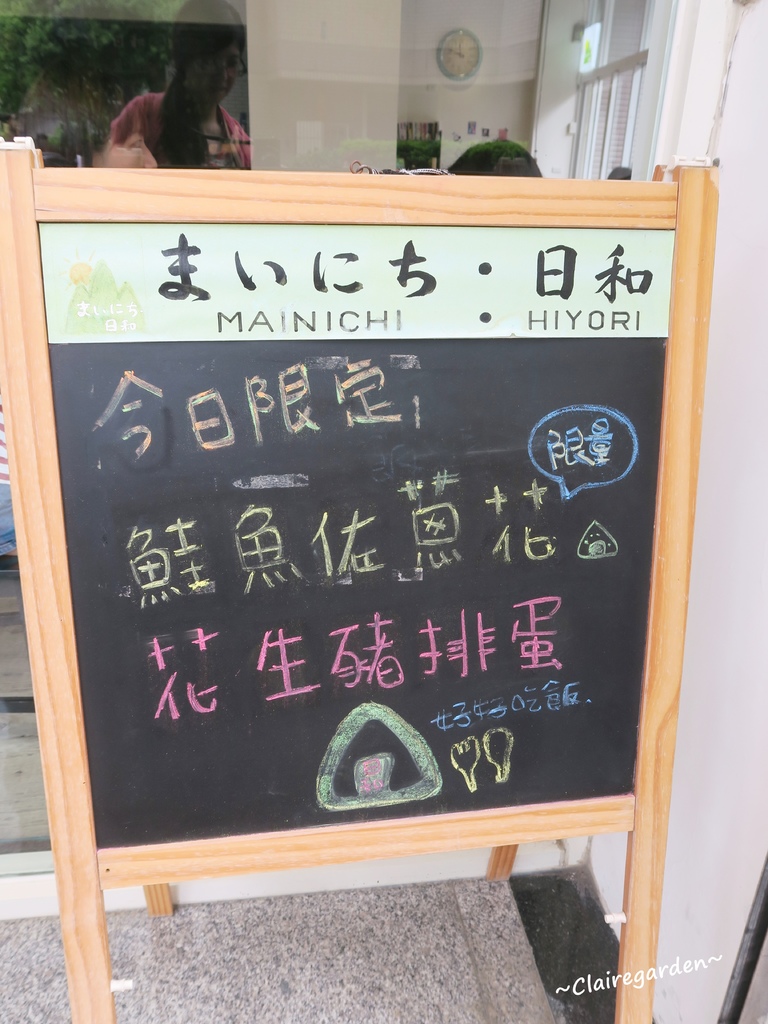 まいにち・日和
MAINICHI・HIYORI
まいにち
日和
今日限定,
限量
鮭魚佐蔥花
花生豬排蛋
好好吃飯.
~Clairegarden~